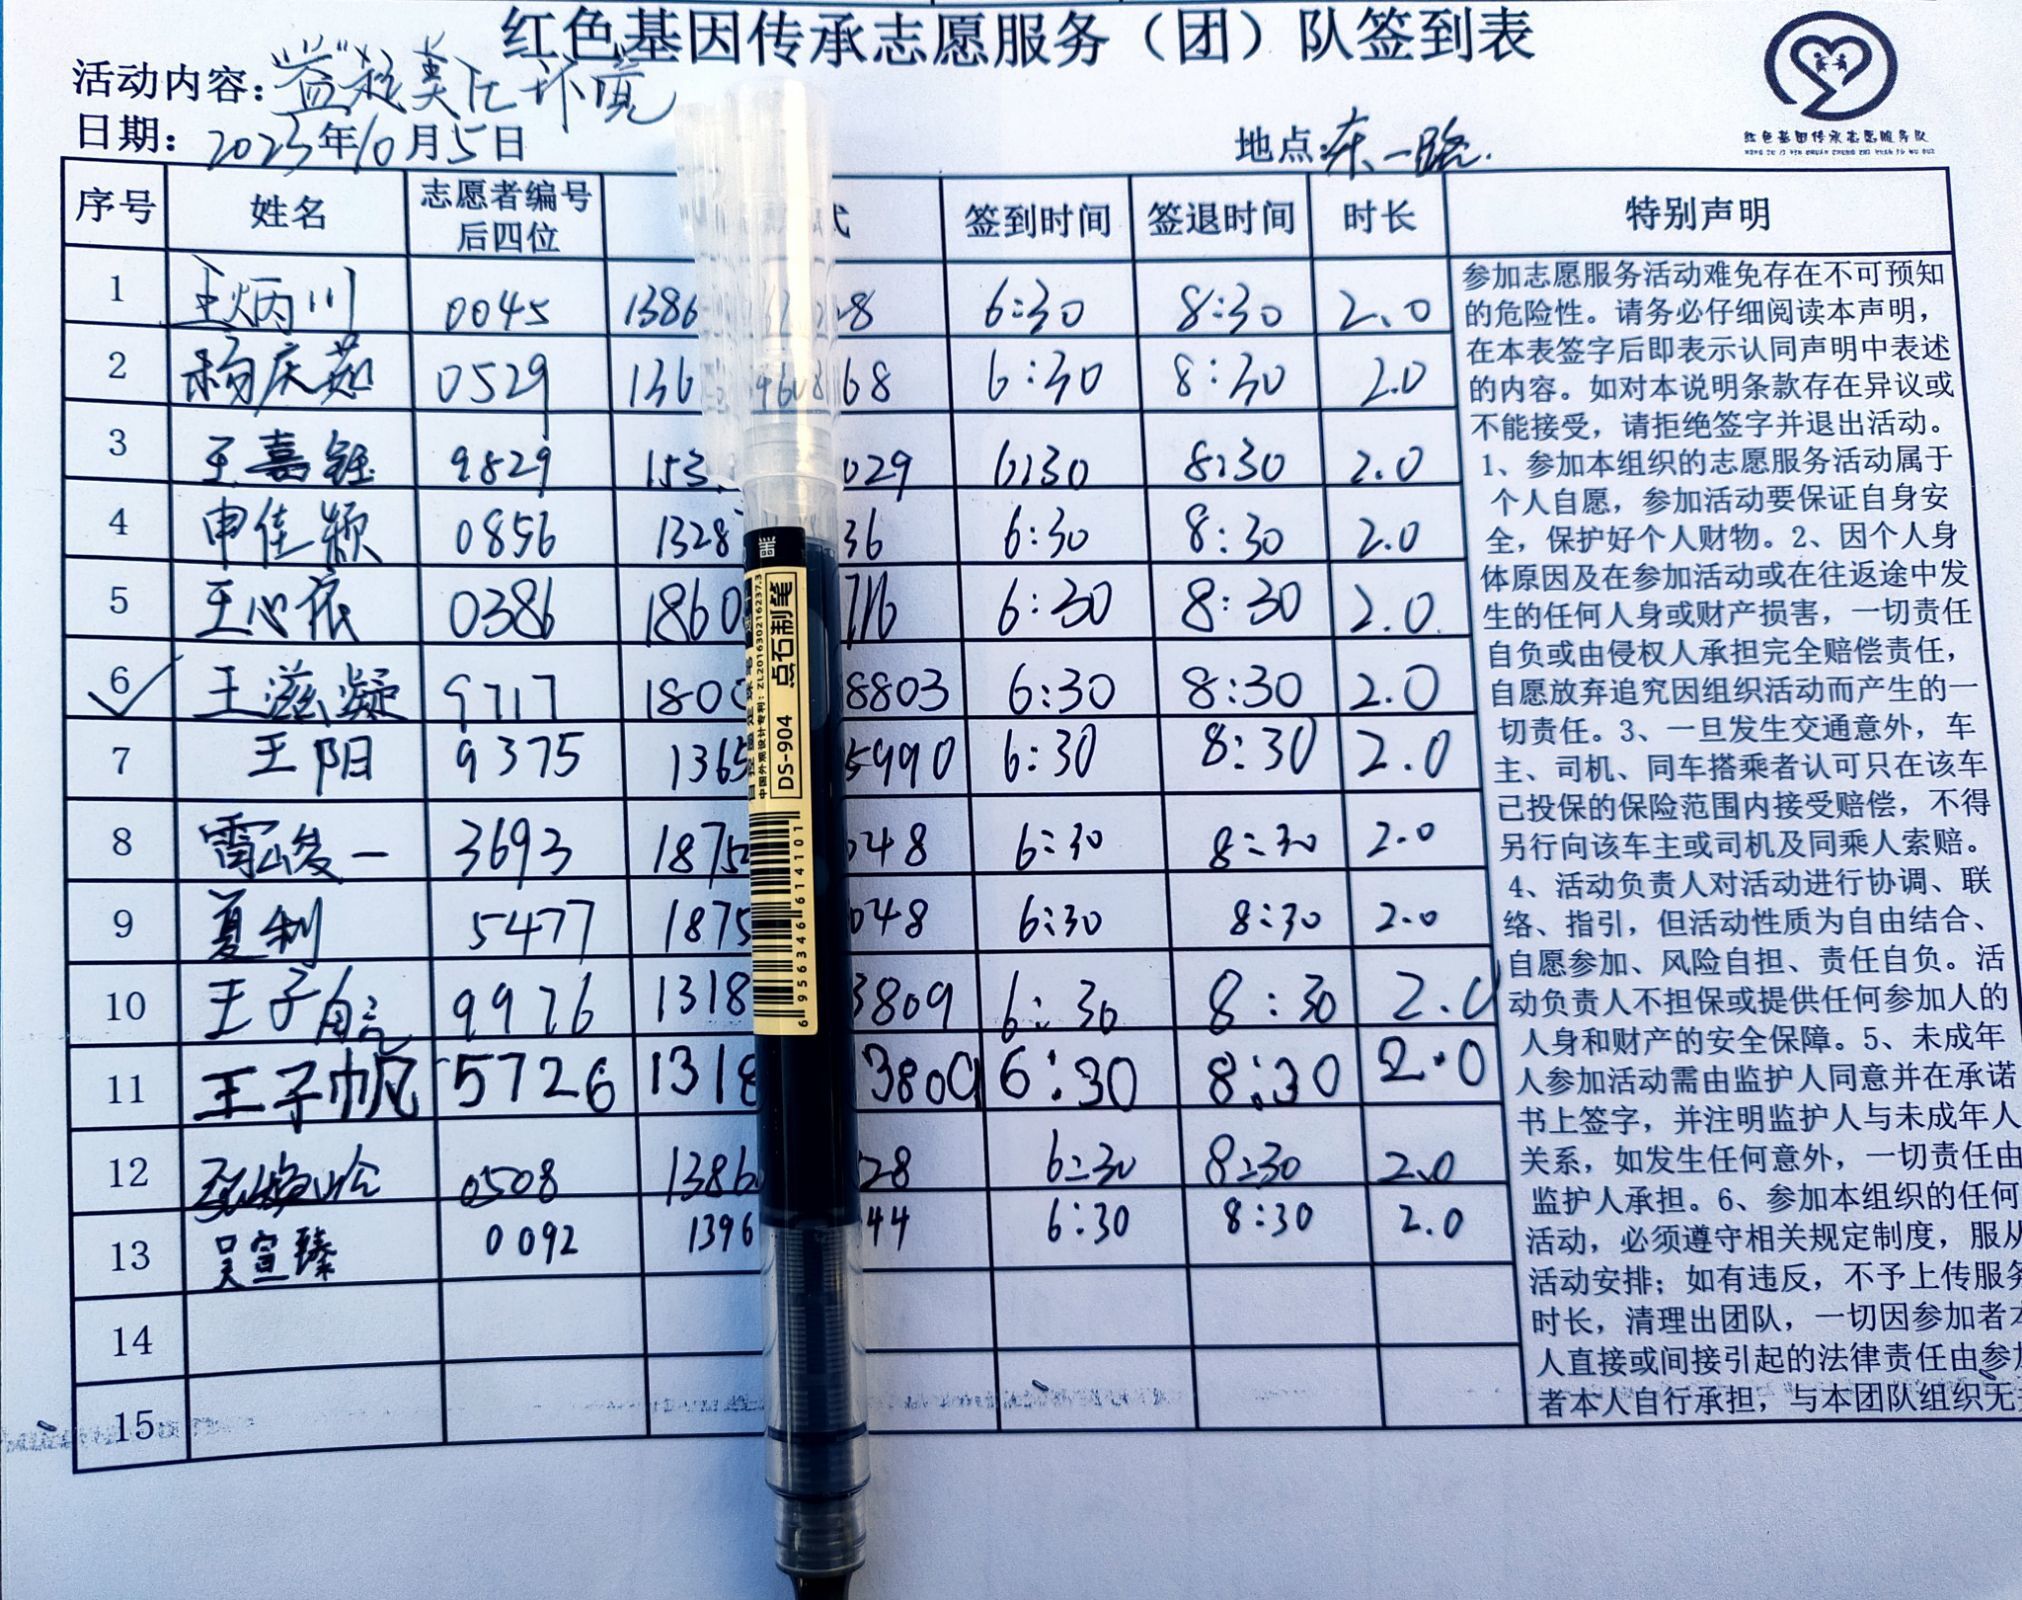 红色基因传承志愿服务（团）队签到表
活动内容：“益”起美化环境
日期：2023年10月5日 地点：东一路.
红色基因传承志愿服务队
序号 姓名 志愿者编号后四位 式 签到时间 签退时间 时长 特别声明
1 王炳川 0045 1386 8 6:30 8:30 2.0
2 杨庆茹 0529 136 68 6:30 8:30 2.0
3 王嘉钰 9829 153 029 6:30 8:30 2.0
4 申佳颖 0856 1328 36 6:30 8:30 2.0
5 王心依 0386 1860 716 6:30 8:30 2.0
6 王滋凝 9717 180 8803 6:30 8:30 2.0
7 王阳 9375 1365 5990 6:30 8:30 2.0
8 雷峻一 3693 1875 048 6:30 8:30 2.0
9 夏利 5477 1875 048 6:30 8:30 2.0
10 王子 9976 1318 3809 6:30 8:30 2.0
11 王子帆 5726 1318 3809 6:30 8:30 2.0
12 0508 1386 28 6:30 8:30 2.0
13 吴宣臻 0092 1396 44 6:30 8:30 2.0
14
15
参加志愿服务活动难免存在不可预知
的危险性。请务必仔细阅读本声明，
在本表签字后即表示认同声明中表述
的内容。如对本说明条款存在异议或
不能接受，请拒绝签字并退出活动。
1、参加本组织的志愿服务活动属于
个人自愿，参加活动要保证自身安
全，保护好个人财物。2、因个人身
体原因及在参加活动或在往返途中发
生的任何人身或财产损害，一切责任
自负或由侵权人承担完全赔偿责任，
自愿放弃追究因组织活动而产生的一
切责任。3、一旦发生交通意外，车
主、司机、同车搭乘者认可只在该车
已投保的保险范围内接受赔偿，不得
另行向该车主或司机及同乘人索赔。
4、活动负责人对活动进行协调、联
络、指引，但活动性质为自由结合、
自愿参加、风险自担、责任自负。活
动负责人不担保或提供任何参加人的
人身和财产的安全保障。5、未成年
人参加活动需由监护人同意并在承诺
书上签字，并注明监护人与未成年人
关系，如发生任何意外，一切责任由
监护人承担。6、参加本组织的任何
活动，必须遵守相关规定制度，服从
活动安排；如有违反，不予上传服务
时长，清理出团队，一切因参加者本
人直接或间接引起的法律责任由参加
者本人自行承担，与本团队组织无
点石制笔
DS-904
中国外观设计专利：ZL201630216237.3
6 956346 614101